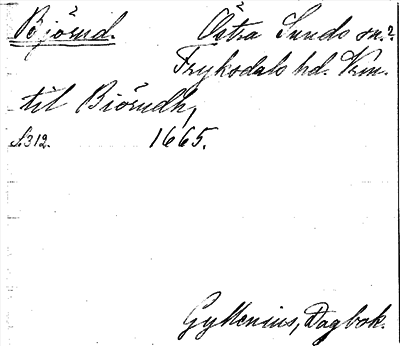 Björud. Östra Sunds sn.?
Fryksdals hd. Vrm.
til Biörudh,
S.312. 1665.
Gyllenius, Dagbok.